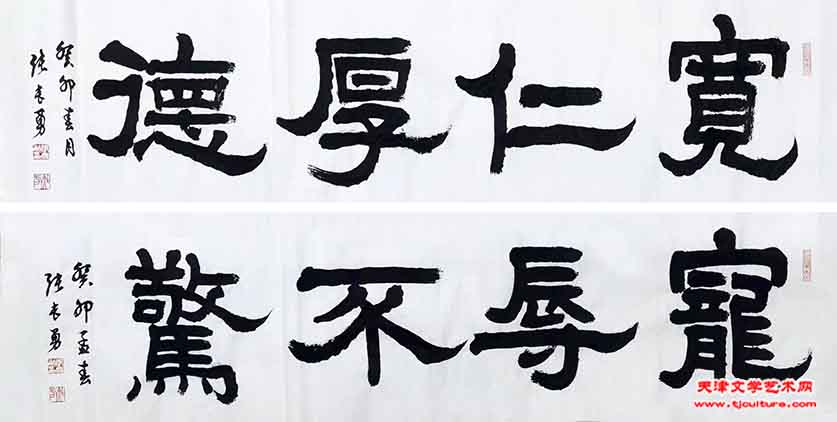 寬仁厚德
癸卯春月
張長勇
寵辱不驚
癸卯孟春
張長勇
天津文学艺术网
www.tjculture.com